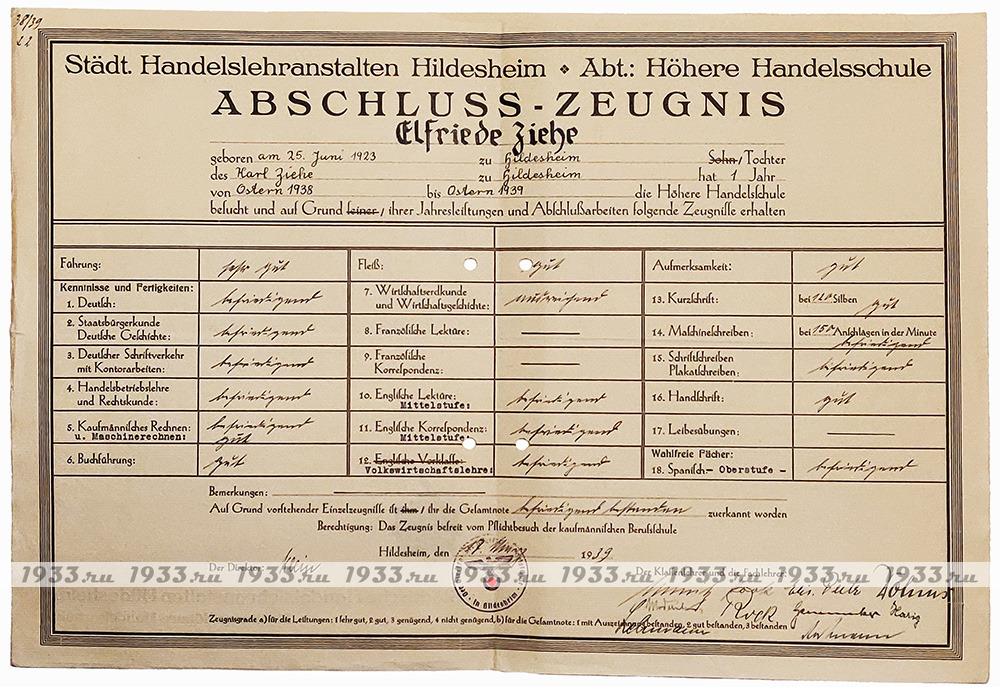 38/39
22
Städt. Handelslehranstalten Hildesheim ❖ Abt.: Höhere Handelsschule
ABSCHLUSS-ZEUGNIS
Elfriede Ziehe
geboren am 25. Juni 1923 zu Hildesheim Sohn/Tochter
des Karl Ziehe zu Hildesheim hat 1 Jahr
von Ostern 1938 bis Ostern 1939 die Höhere Handelschule
besucht und auf Grund seiner/ihrer Jahresleistungen und Abschlußarbeiten folgende Zeugnisse erhalten
Führung: sehr gut Fleiß: gut Aufmerksamkeit: gut
Kenntnisse und Fertigkeiten:
1. Deutsch: befriedigend
2. Staatsbürgerkunde
Deutsche Geschichte: befriedigend
3. Deutscher Schriftverkehr
mit Kontorarbeiten: befriedigend
4. Handelsbetriebslehre
und Rechtskunde: befriedigend
5. Kaufmännisches Rechnen: befriedigend
u. Maschinerechnen: gut
6. Buchführung: gut
7. Wirtschaftserdkunde
und Wirtschaftsgeschichte: ausreichend
8. Französische Lektüre: —
9. Französische
Korrespondenz: —
10. Englische Lektüre: befriedigend
Mittelstufe:
11. Englische Korrespondenz: befriedigend
Mittelstufe:
12. Englische Vorklasse:
Volkswirtschaftslehre: befriedigend
13. Kurzschrift: bei 120 Silben gut
14. Maschineschreiben: bei 150 Anschlägen in der Minute
befriedigend
15. Schriftschreiben
Plakatschreiben: befriedigend
16. Handschrift: gut
17. Leibesübungen: —
Wahlfreie Fächer:
18. Spanisch:- Oberstufe - befriedigend
Bemerkungen: —
Auf Grund vorstehender Einzelzeugnisse ist ihm/ihr die Gesamtnote befriedigend bestanden zuerkannt worden
Berechtigung: Das Zeugnis befreit vom Pflichtbesuch der kaufmännischen Berufsschule
Hildesheim, den März 1939
Der Direktor: Der Klassenlehrer und die Fachlehrer:
in Hildesheim
1933.ru 1933.ru 1933.ru 1933.ru 1933.ru 1933.ru 1933.ru 1933.ru 1933.ru
Zeugnisgrade a) für die Leistungen: 1 sehr gut, 2 gut, 3 genügend, 4 nicht genügend, b) für die Gesamtnote: 1 mit Auszeichnung bestanden, 2 gut bestanden, 3 bestanden